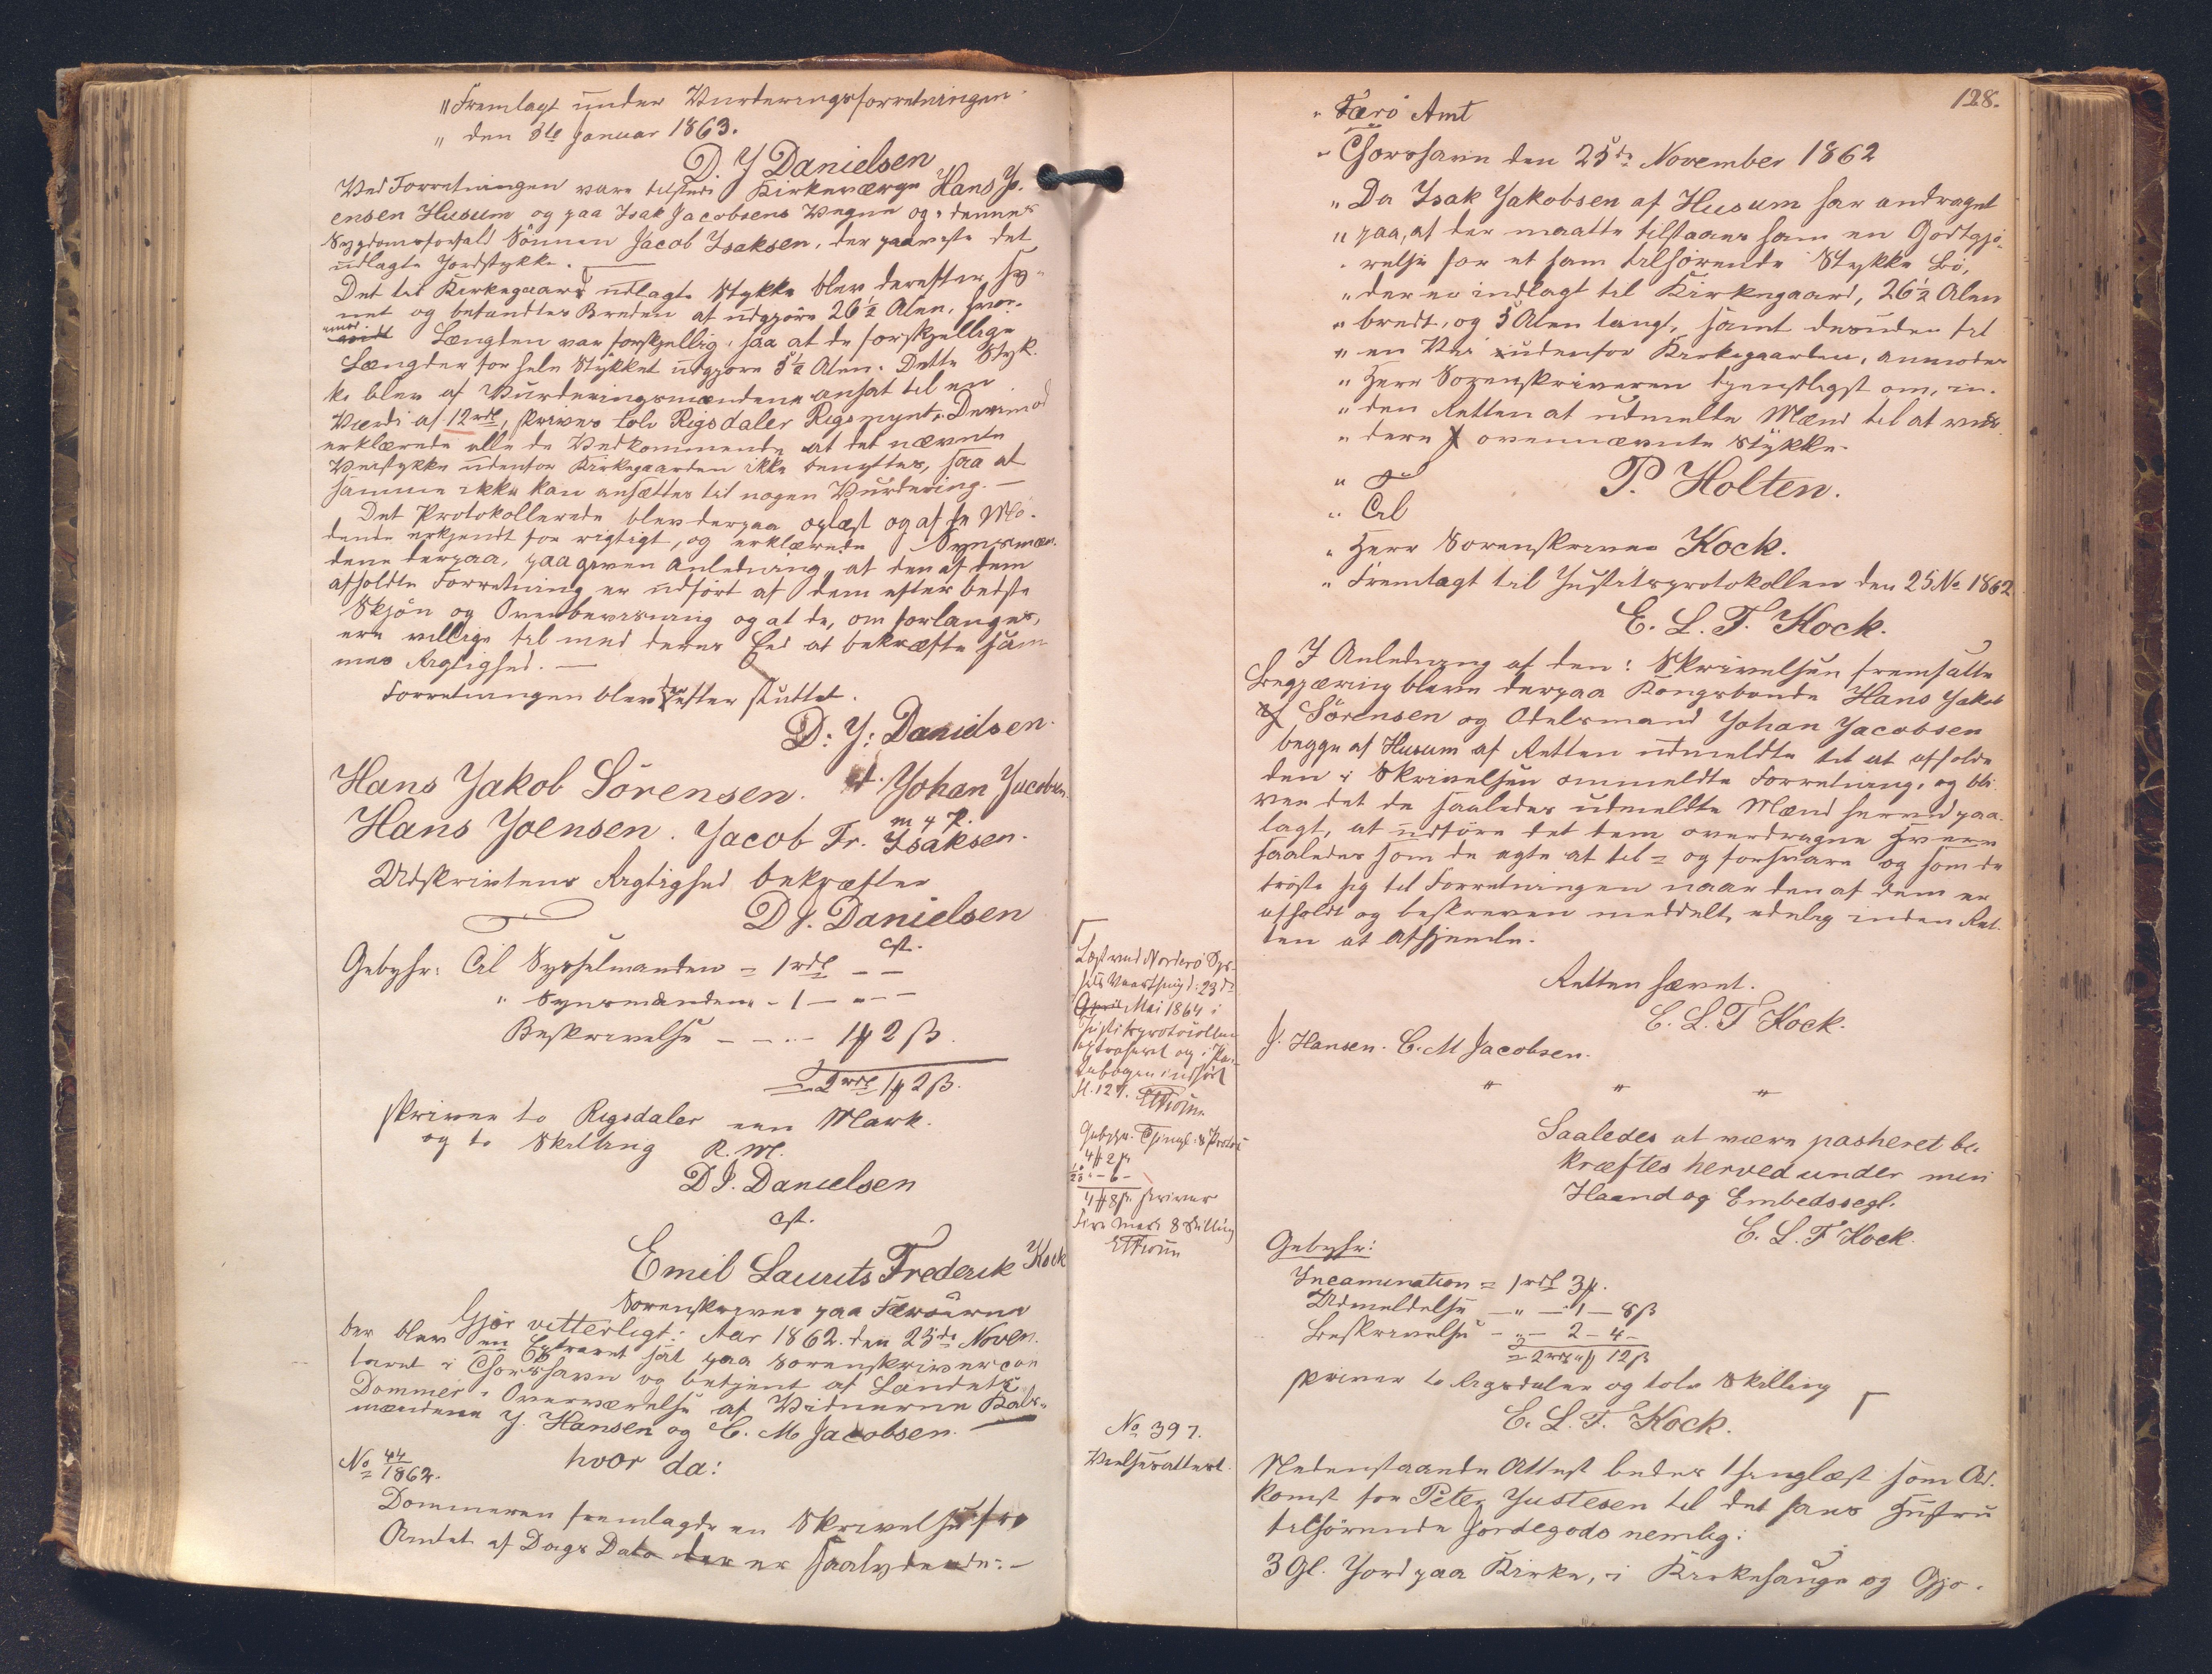 "Fremlagt under Vurderingsforretningen
" den 8de Januar 1863.
D. J Danielsen
Ved Forretningen vare tilstede Kirkeværge Hans Jo-
ensen Husum og paa Isak Jacobsens Vegne og denne's
Sygdomsforfald Sönnen Jacob Isaksen, der paaviste det
udlagte Jordstykke.
Det til Kirkegaard udlagte Stykke blev derefter sy-
net og befandtes Breden at udgjöre 26½ Alen, hvor-
imod Længden var forskjellig, saa at de forskjellige
Længder for hele Stykket udgjöre 5½ Alen. Dette Styk-
ke blev af Vurderingsmændene ansat til en
Værdi af 12 rdl, skriver tolv Rigsdaler Rigsmynt. Derimod
erklærede alle de Vedkommende at det nævnte
Veistykke udenfor Kirkegaarden ikke benyttes, saa at
samme ikke kan ansættes til nogen Vurdering. —
Det Protokollerede blev derpaa oplæst og af de Mö-
dende erkjendt for rigtigt, og erklærede Synsmæn-
dene derpaa, paa given Anledning, at den af dem
afholdte Forretning er udfört af dem efter bedste
Skjön og Overbeviisning og at de, om forlanges,
ere villige til med deres Eed at bekræfte sam-
mes Rigtighed. —
Forretningen blev derefter sluttet.
D: J: Danielsen.
Hans Jakob Sörensen. Johan Jacobsen
m f P.
Hans Joensen. Jacob Fr. Isaksen.
Udskrivtens Rigtighed bekræfter
D J. Danielsen
cst.
Gebyhr: Til Sysselmanden = 1 rdl — —
" Synsmændene - 1 — " — —
Beskrivelse — — " — 1 ℳ 2 ß.
= 2 rdl 1 ℳ 2 ß.
skriver to Rigsdaler een Mark
og to Skilling R. M.
D J. Danielsen
cst.
Emil Laurits Frederik Kock
Sorenskriver paa Færöerne
Gjör vitterligt: Aar 1862 den 25de Novem.
der blev en Extraret sat paa Sorenskrivercon
toret i Thorshavn og betjent af Landets
Dommer i Overværelse af Vidnerne Købs-
mændene J. Hansen og C. M Jacobsen.
No 44/1862. hvor da:
Dommeren fremlagde en Skrivelse fra
Amtet af Dags Dato der er saalydende: —
Læst ved Norderö Sys-
sels Vaarthing d: 23de
April Mai 1864 i
Justitsprotocollen
extraheret og i Pan-
tebogen indfört
fl. 127.
Gebyhr. Thingl: & Protoc
4 ℳ 2 ß
— 6 —
4 ℳ 8 ß. skriver
Fire Mark 8 Skilling
No 397.
Vielsesattest.
128.
" Færö Amt
" Thorshavn den 25de November 1862
" Da Isak Jakobsen af Husum har andraget
" paa, at der maatte tilstaaes ham en Godtgjö-
" relse for et ham tilhörende Stykke Bö,
" der er indlagt til Kirkegaard, 26½ Alen
" bredt, og 5 Alen langt, samt desuden til
" en Vei udenfor Kirkegaarden, anmodes
" Herr Sorenskriveren tjenstligst om, in-
" den Retten at udmelde Mænd til at vur-
" dere ovennævnte Stykke.
P. Holten.
" Til
" Herr Sorenskriver Kock.
" Fremlagt til Justitsprotokollen den 25 No 1862
E. L. F. Kock.
I Anledning af den i Skrivelsen fremsatte
Begjæring bleve derpaa Kongsbonde Hans Jakob
Sörensen og Odelsmand Johan Jacobsen
begge af Husum af Retten udmeldte til at afholde
den i Skrivelsen ommeldte Forretning, og ble-
ven det de saaledes udmeldte Mænd herved paa-
lagt, at udföre det dem overdragne Hverv
saaledes som de agte at til= og forsvare og som de
tröste sig til Forretningen naar den af dem er
afholdt og beskreven meddelt, edelig inden Ret-
ten at afhjemle.
Retten hævet.
E. L. F Kock.
J. Hansen. C. M Jacobsen.
" " "
Saaledes at være passeret be-
kræftes herved under min
Haand og Embedssegl.
E. L. F Kock.
Gebyhr:
Incamination = 1 rdl 3 ℳ.
Udmeldelse — " — 1 — 8 ß
Beskrivelse — " — 2 — 4 —
= 2 rdl " ℳ 12 ß
skriver to Rigsdaler og tolv Skilling
E. L. F. Kock.
Nedenstaaende Attest bedes thinglæst som Ad-
komst for Peter Justesen til det hans Hustru
tilhörende Jordegods nemlig:
3 Gl. Jord paa Kirke, i Kirkehauge og Gjo-